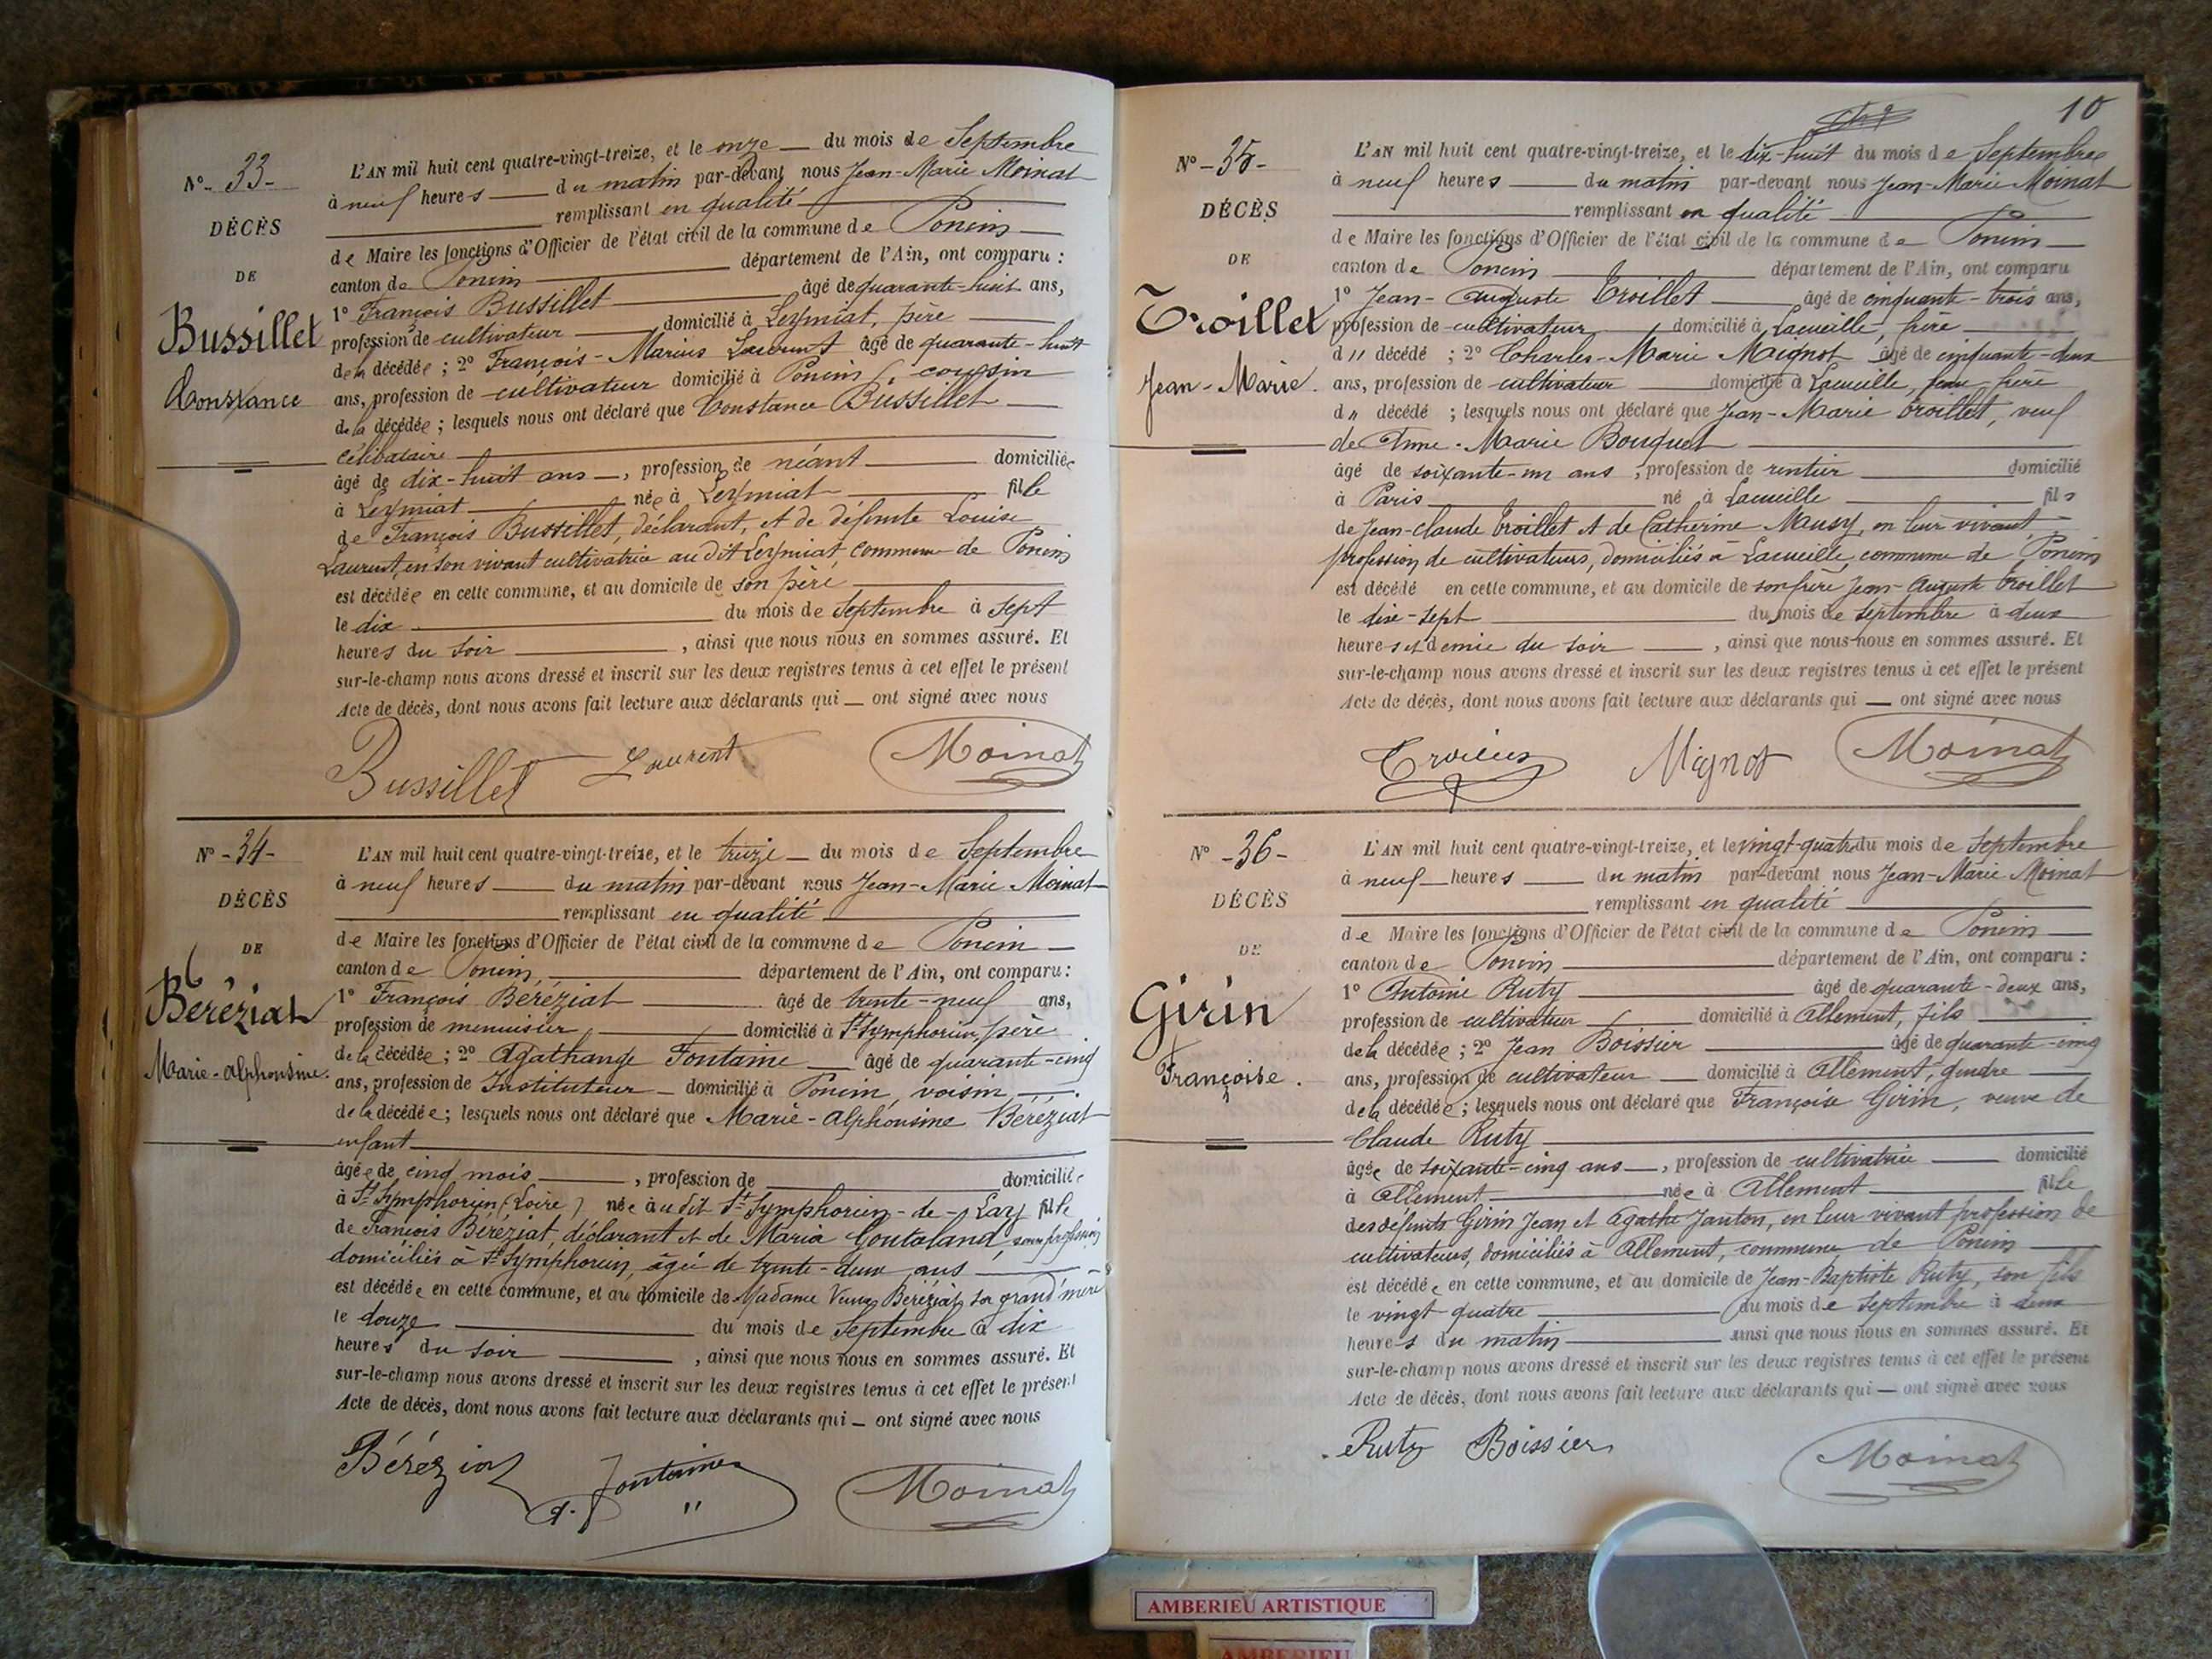 N° - 33 -
DÉCÈS
DE
Bussillet
Constance
L'AN mil huit cent quatre-vingt-treize, et le onze — du mois de Septembre
à neuf heures — du matin par-devant nous Jean-Marie Moinat
remplissant en qualité
de Maire les fonctions d'Officier de l'état civil de la commune de Poncin
canton de Poncin département de l'Ain, ont comparu :
1° François Bussillet âgé de quarante-huit ans,
profession de cultivateur domicilié à Leymiat, père
de la décédée ; 2° François-Marius Laurent âgé de quarante-huit
ans, profession de cultivateur domicilié à Poncin, cousin
de la décédée ; lesquels nous ont déclaré que Constance Bussillet
célibataire
âgé de dix-huit ans —, profession de néant domiciliée
à Leymiat née à Leymiat fille
de François Bussillet, déclarant, et de défunte Louise
Laurent, en son vivant cultivatrice au dit Leymiat commune de Poncin
est décédée en cette commune, et au domicile de son père
le dix du mois de Septembre à sept
heures du soir , ainsi que nous nous en sommes assuré. Et
sur-le-champ nous avons dressé et inscrit sur les deux registres tenus à cet effet le présent
Acte de décès, dont nous avons fait lecture aux déclarants qui — ont signé avec nous
Bussillet Laurent Moinat
N° - 34 -
DÉCÈS
DE
Béréziat
Marie-Alphonsine.
L'AN mil huit cent quatre-vingt-treize, et le treize — du mois de Septembre
à neuf heures — du matin par-devant nous Jean-Marie Moinat
remplissant en qualité
de Maire les fonctions d'Officier de l'état civil de la commune de Poncin
canton de Poncin département de l'Ain, ont comparu :
1° François Béréziat âgé de trente-neuf ans,
profession de menuisier domicilié à St Symphorien, père
de la décédée ; 2° Agathange Fontaine âgé de quarante-cinq
ans, profession de Instituteur — domicilié à Poncin, voisin
de la décédée ; lesquels nous ont déclaré que Marie-Alphonsine Béréziat
enfant
âgée de cinq mois , profession de domiciliée
à St Symphorien (Loire) née au dit St Symphorien-de-Lay fille
de François Béréziat, déclarant et de Maria Goutaland, sans profession
domiciliés à St Symphorien, âgée de trente-deux ans
est décédée en cette commune, et au domicile de Madame Veuve Béréziat, sa grand'mère
le douze du mois de Septembre à dix
heures du soir , ainsi que nous nous en sommes assuré. Et
sur-le-champ nous avons dressé et inscrit sur les deux registres tenus à cet effet le présent
Acte de décès, dont nous avons fait lecture aux déclarants qui — ont signé avec nous
Béréziat A. Fontaine Moinat
10
N° - 35 -
DÉCÈS
DE
Troillet
Jean-Marie.
L'AN mil huit cent quatre-vingt-treize, et le dix-huit du mois de Septembre
à neuf heures — du matin par-devant nous Jean-Marie Moinat
remplissant en qualité
de Maire les fonctions d'Officier de l'état civil de la commune de Poncin
canton de Poncin département de l'Ain, ont comparu
1° Jean-Auguste Troillet âgé de cinquante-trois ans,
profession de cultivateur domicilié à Lacueille, frère
d" décédé ; 2° Charles-Marie Maignot âgé de cinquante-deux
ans, profession de cultivateur domicilié à Lacueille, beau-frère
d" décédé ; lesquels nous ont déclaré que Jean-Marie Troillet, veuf
de Anne-Marie Bouquet
âgé de soixante-un ans , profession de rentier domicilié
à Paris né à Lacueille fils
de Jean-Claude Troillet et de Catherine Mausy, en leur vivant
profession de cultivateurs, domiciliés à Lacueille, commune de Poncin
est décédé en cette commune, et au domicile de son frère Jean-Auguste Troillet
le dix-sept du mois de septembre à deux
heures et demie du soir , ainsi que nous nous en sommes assuré. Et
sur-le-champ nous avons dressé et inscrit sur les deux registres tenus à cet effet le présent
Acte de décès, dont nous avons fait lecture aux déclarants qui — ont signé avec nous
Mignot Moinat
N° - 36 -
DÉCÈS
DE
Girin
Françoise.
L'AN mil huit cent quatre-vingt-treize, et le vingt-quatre du mois de Septembre
à neuf — heures — du matin par-devant nous Jean-Marie Moinat
remplissant en qualité
de Maire les fonctions d'Officier de l'état civil de la commune de Poncin
canton de Poncin département de l'Ain, ont comparu :
1° Antoine Ruty âgé de quarante-deux ans,
profession de cultivateur domicilié à Allement, fils
de la décédée ; 2° Jean Boissier âgé de quarante-cinq
ans, profession de cultivateur — domicilié à Allement, gendre
de la décédée ; lesquels nous ont déclaré que Françoise Girin, veuve de
Claude Ruty
âgée de soixante-cinq ans —, profession de cultivatrice domicilié
à Allement née à Allement fille
des défunts Girin Jean et Agathe Janton, en leur vivant profession de
cultivateurs, domiciliés à Allement, commune de Poncin
est décédée en cette commune, et au domicile de Jean-Baptiste Ruty, son fils
le vingt-quatre du mois de septembre à deux
heures du matin ainsi que nous nous en sommes assuré. Et
sur-le-champ nous avons dressé et inscrit sur les deux registres tenus à cet effet le présent
Acte de décès, dont nous avons fait lecture aux déclarants qui — ont signé avec nous
Ruty Boissier Moinat
AMBERIEU ARTISTIQUE
AMBERIEU